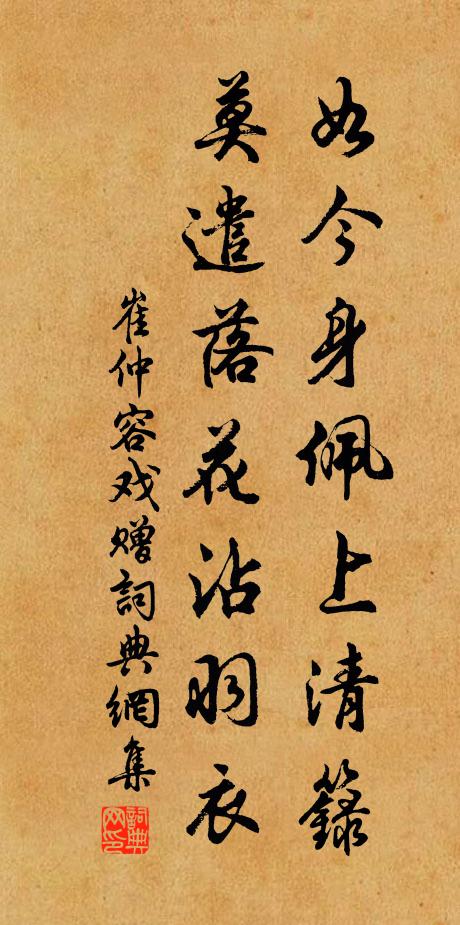 如今身佩上清籙
莫遣落花沾羽衣
崔仲容戏赠詞典網集
詞典网印